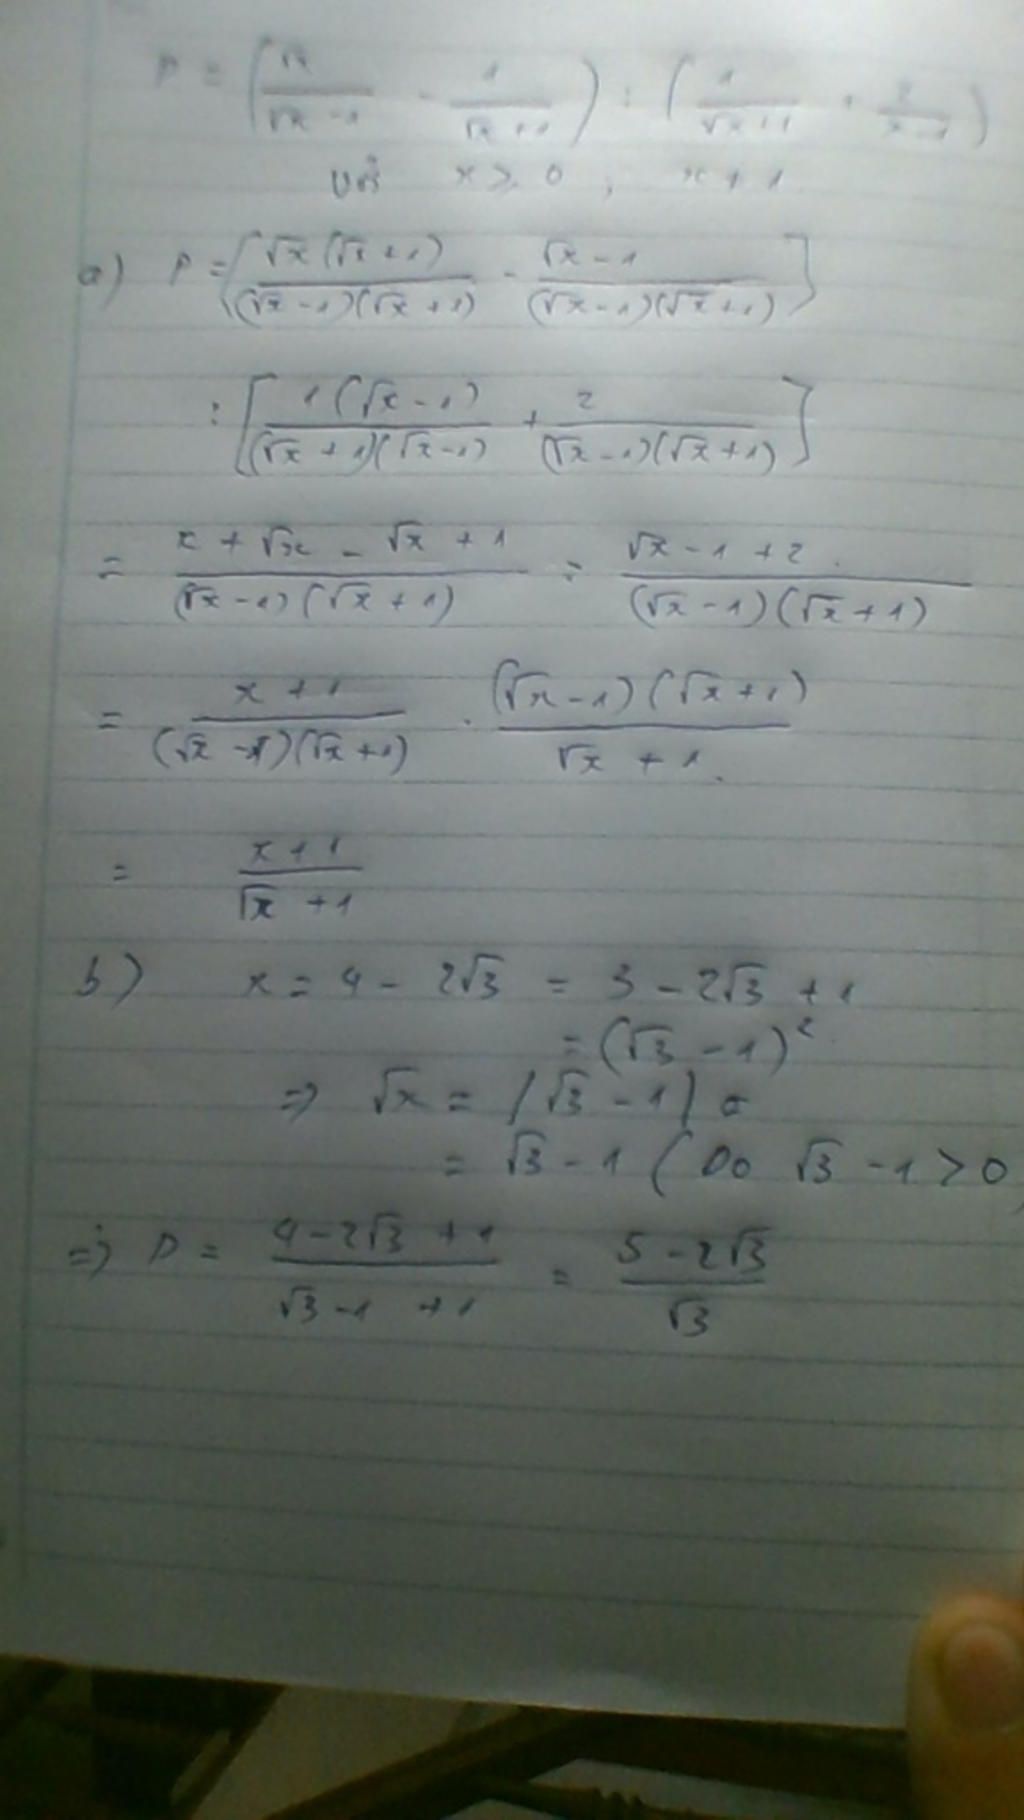 P = (√x/(√x - 1) - 1/(√x + 1)) : (1/(√x + 1) + 2/(x - 1))
Với x ≥ 0, x ≠ 1
a) P = [√x(√x + 1)/((√x - 1)(√x + 1)) - (√x - 1)/((√x - 1)(√x + 1))]
: [1(√x - 1)/((√x + 1)(√x - 1)) + 2/((√x - 1)(√x + 1))]
= (x + √x - √x + 1)/((√x - 1)(√x + 1)) : (√x - 1 + 2)/((√x - 1)(√x + 1))
= (x + 1)/((√x - 1)(√x + 1)) . ((√x - 1)(√x + 1))/(√x + 1)
= (x + 1)/(√x + 1)
b) x = 4 - 2√3 = 3 - 2√3 + 1
= (√3 - 1)²
=> √x = |√3 - 1| =
= √3 - 1 (Do √3 - 1 > 0)
=> P = (4 - 2√3 + 1)/(√3 - 1 + 1) = (5 - 2√3)/√3